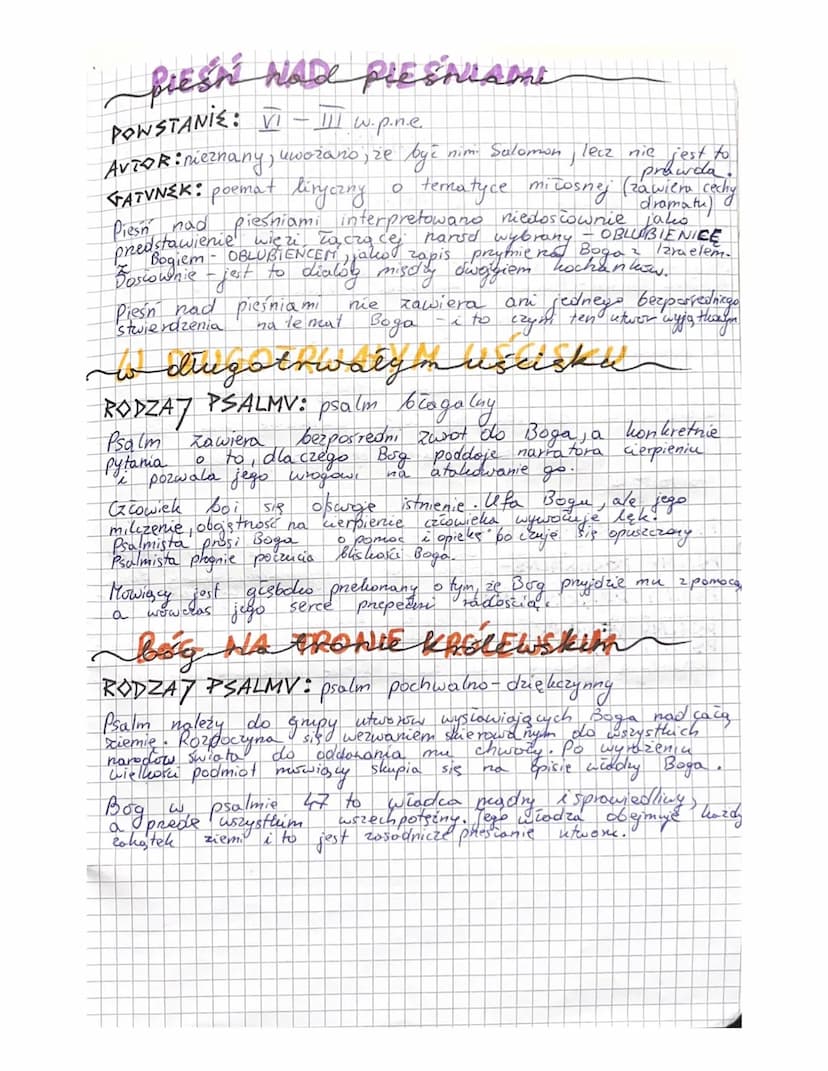 PIEŚŃ NAD PIEŚNIAMI
pieśń nad pieśniami
POWSTANIE: VI – III w.p.n.e.
AUTOR: nieznany, uważano, że być nim Salomon, lecz nie jest to
prawda.
GATUNEK: poemat liryczny o tematyce miłosnej (zawiera cechy
dramatu)
Pieśń nad pieśniami interpretowano niedosłownie jako
przedstawienie więzi łączącej naród wybrany – OBLUBIENICĘ
z Bogiem - OBLUBIEŃCEM, jako zapis przymierza Boga z Izraelem.
Dosłownie – jest to dialog między dwojgiem kochanków.
Pieśń nad pieśniami nie zawiera ani jednego bezpośredniego
stwierdzenia na temat Boga – i to czym ten utwór wyjątkowym
W DŁUGOTRWAŁYM UŚCISKU
w długotrwałym uścisku
RODZAJ PSALMU: psalm błagalny
Psalm zawiera bezpośredni zwrot do Boga, a konkretnie
pytania o to, dlaczego Bóg poddaje narratora cierpieniu
i pozwala jego wrogowi na atakowanie go.
Człowiek boi się o swoje istnienie. Ufa Bogu, ale jego
milczenie, obojętność na cierpienie człowieka wywołuje lęk.
Psalmista prosi Boga o pomoc i opiekę bo czuje się opuszczony.
Psalmista pragnie poczucia bliskości Boga.
Mówiący jest głęboko przekonany o tym, że Bóg przyjdzie mu z pomocą,
a wówczas jego serce przepełni radością.
BÓG NA TRONIE KRÓLEWSKIM
bóg na tronie królewskim
RODZAJ PSALMU: psalm pochwalno-dziękczynny
Psalm należy do grupy utworów wysławiających Boga nad całą
ziemię. Rozpoczyna się wezwaniem skierowanym do wszystkich
narodów świata do oddawania mu chwały. Po wyrażeniu
wielkości podmiot mówiący skupia się na opisie władzy Boga.
Bóg w psalmie 47 to władca mądry i sprawiedliwy,
a przede wszystkim wszechpotężny. Jego władza obejmuje każdy
zakątek ziemi i to jest zasadnicze przesłanie utworu.